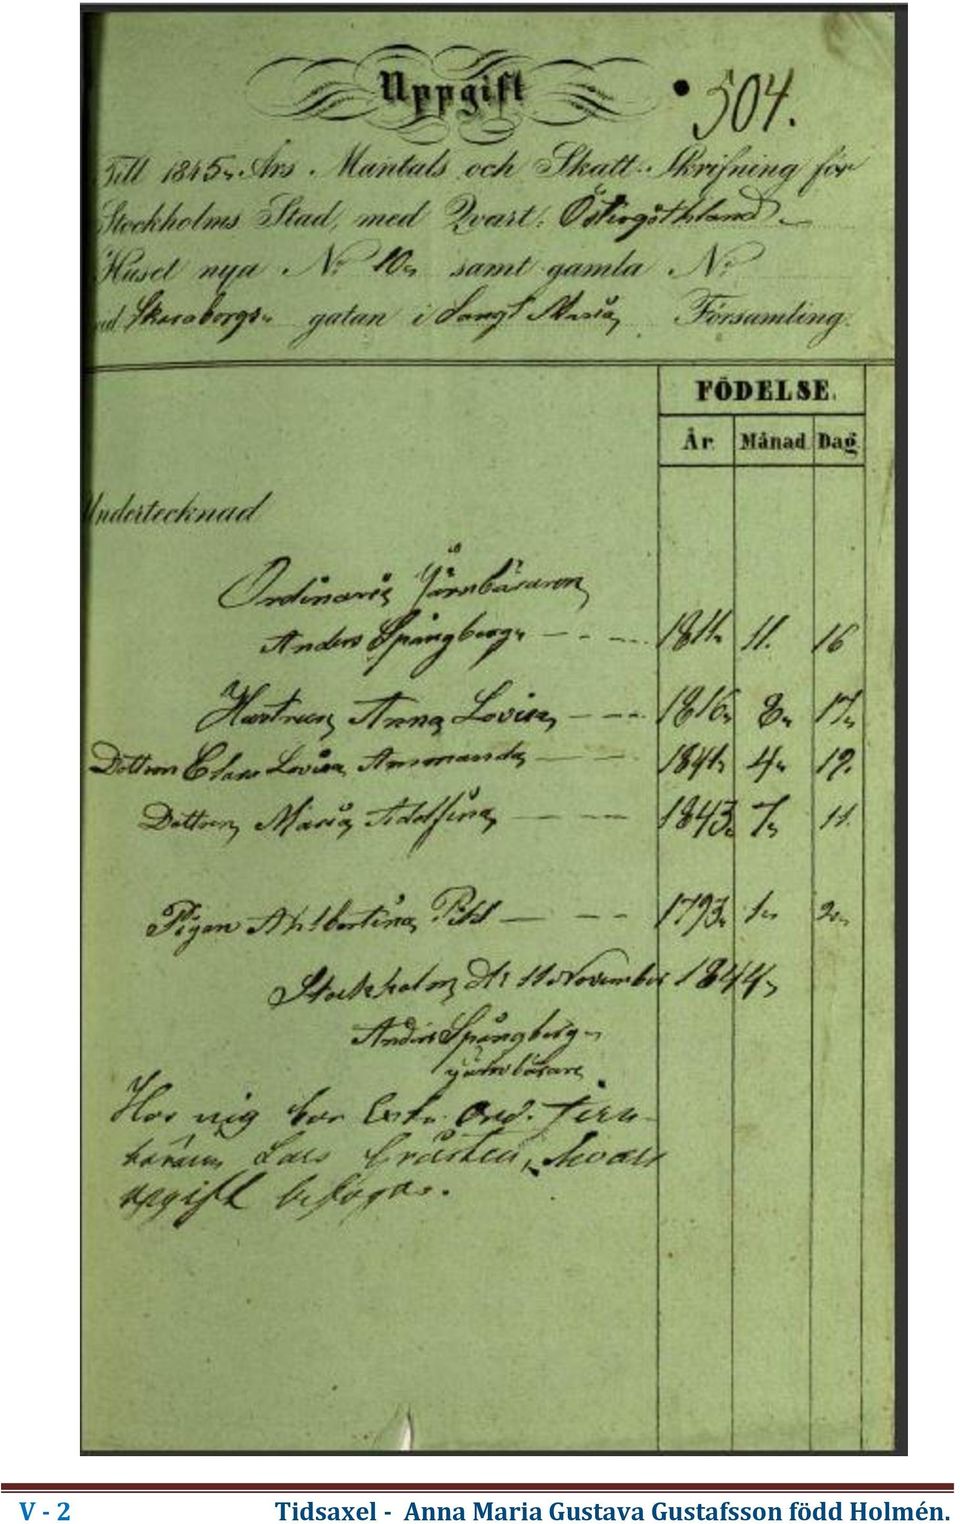 Uppgift
504.
Till 1845 Års Mantals och Skatt-Skrifning för
Stockholms Stad, med Qvart. Östergöthland
Huset nya N:o 10 samt gamla N:o
vid Skaraborgs gatan i Sangt Maria Församling.
FÖDELSE.
År Månad Dag
Undertecknad
Ordinarie Järnbäraren
Anders Spångberg 1811 11. 16
Hustrun Anna Lovisa 1816 8 17
Dottren Clara Lovisa Ammanda 1841 4 19.
Dottren Maria Adolfina 1843 7 11.
Pigan Albertina Pihl 1793 1 20
Stockholm den 11 November 1844
Anders Spångberg
järnbärare
Hos mig bor Ord. Jern
bäraren Lars hvars
upgift befogas.
V - 2 Tidsaxel - Anna Maria Gustava Gustafsson född Holmén.